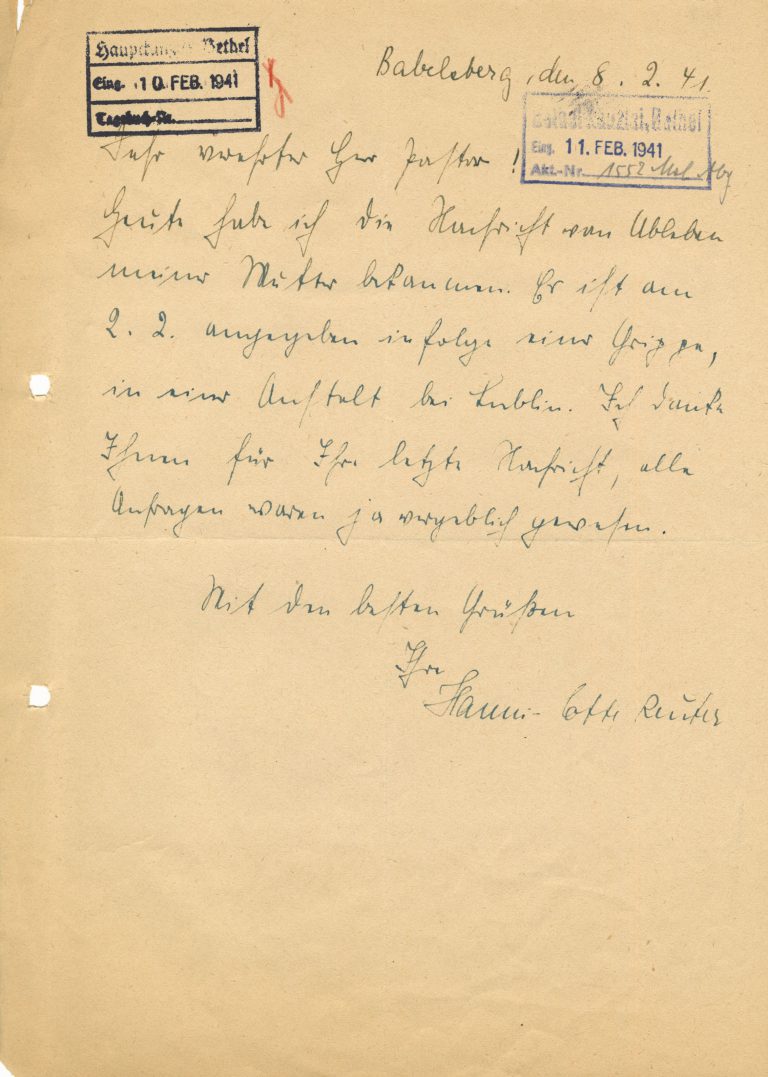 Hauptkanzlei Bethel
Eing. 10. FEB. 1941
Tagebuch-Nr.
Babelsberg, den 8. 2. 41.
Kanzlei, Bethel
Eing. 11. FEB. 1941
Akt.-Nr. 1552
Sehr verehrter Herr Pastor!
Heute habe ich die Nachricht vom Ableben
meiner Mutter bekommen. Er ist am
2. 2. angegeben infolge einer Grippe,
in einer Anstalt bei Lublin. Ich danke
Ihnen für Ihre letzte Nachricht, alle
Anfragen waren ja vergeblich gewesen.
Mit den besten Grüßen
Ihre
Hanne-Lotte Reuter